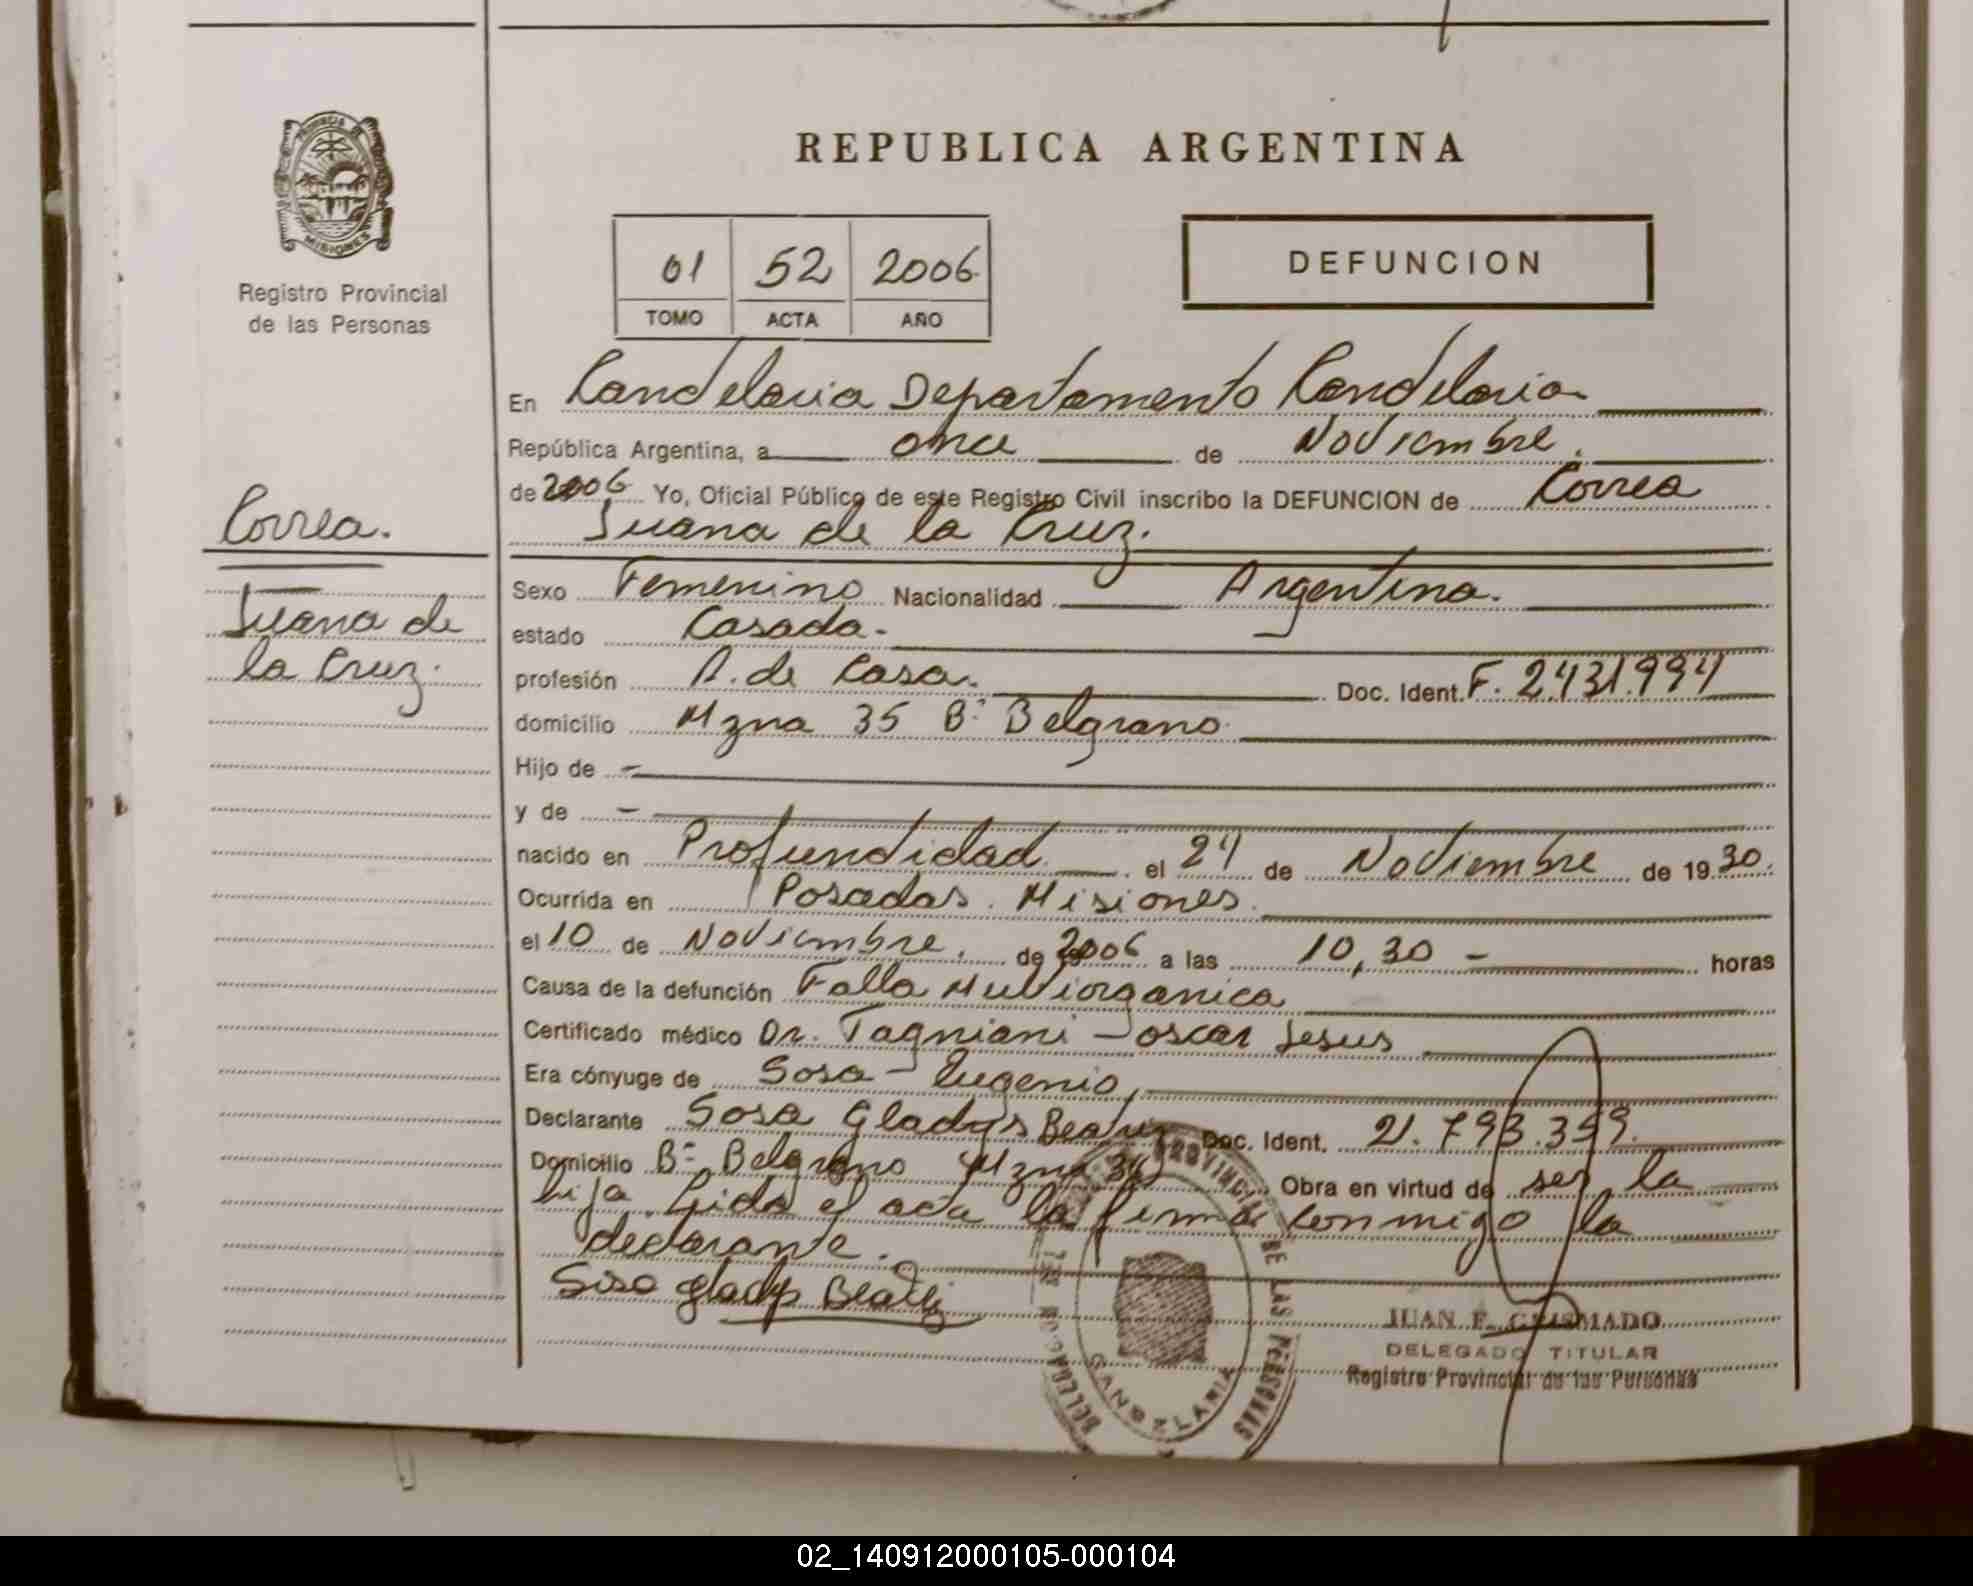 REPUBLICA ARGENTINA
PROVINCIA DE
MISIONES
Registro Provincial
de las Personas
01 52 2006
TOMO ACTA AÑO
DEFUNCION
En Candelaria Departamento Candelaria
República Argentina, a once de Noviembre.
de 2006 Yo, Oficial Público de este Registro Civil inscribo la DEFUNCION de Correa
Juana de la Cruz.
Correa.
Juana de
la Cruz.
Sexo Femenino Nacionalidad Argentina.
estado Casada.
profesión A. de Casa. Doc. Ident. F. 2.431.994
domicilio Mzna 35 Bº Belgrano.
Hijo de -
y de -
nacido en Profundidad. el 24 de Noviembre de 1930.
Ocurrida en Posadas. Misiones.
el 10 de Noviembre. de 2006 a las 10,30 - horas
Causa de la defunción Falla Multiorganica
Certificado médico Dr. Tagniani - oscar Jesus
Era cónyuge de Sosa - Eugenio,
Declarante Sosa Gladys Beatriz Doc. Ident. 21.793.359.
Domicilio Bº Belgrano Mzna 35 Obra en virtud de ser la
hija. Leida el acta la firma conmigo la
declarante.
Sosa Gladys Beatriz
DELEGACION REG. PROVINCIAL DE LAS PERSONAS
CANDELARIA
JUAN E. GRISMADO
DELEGADO TITULAR
Registro Provincial de las Personas
02_140912000105-000104